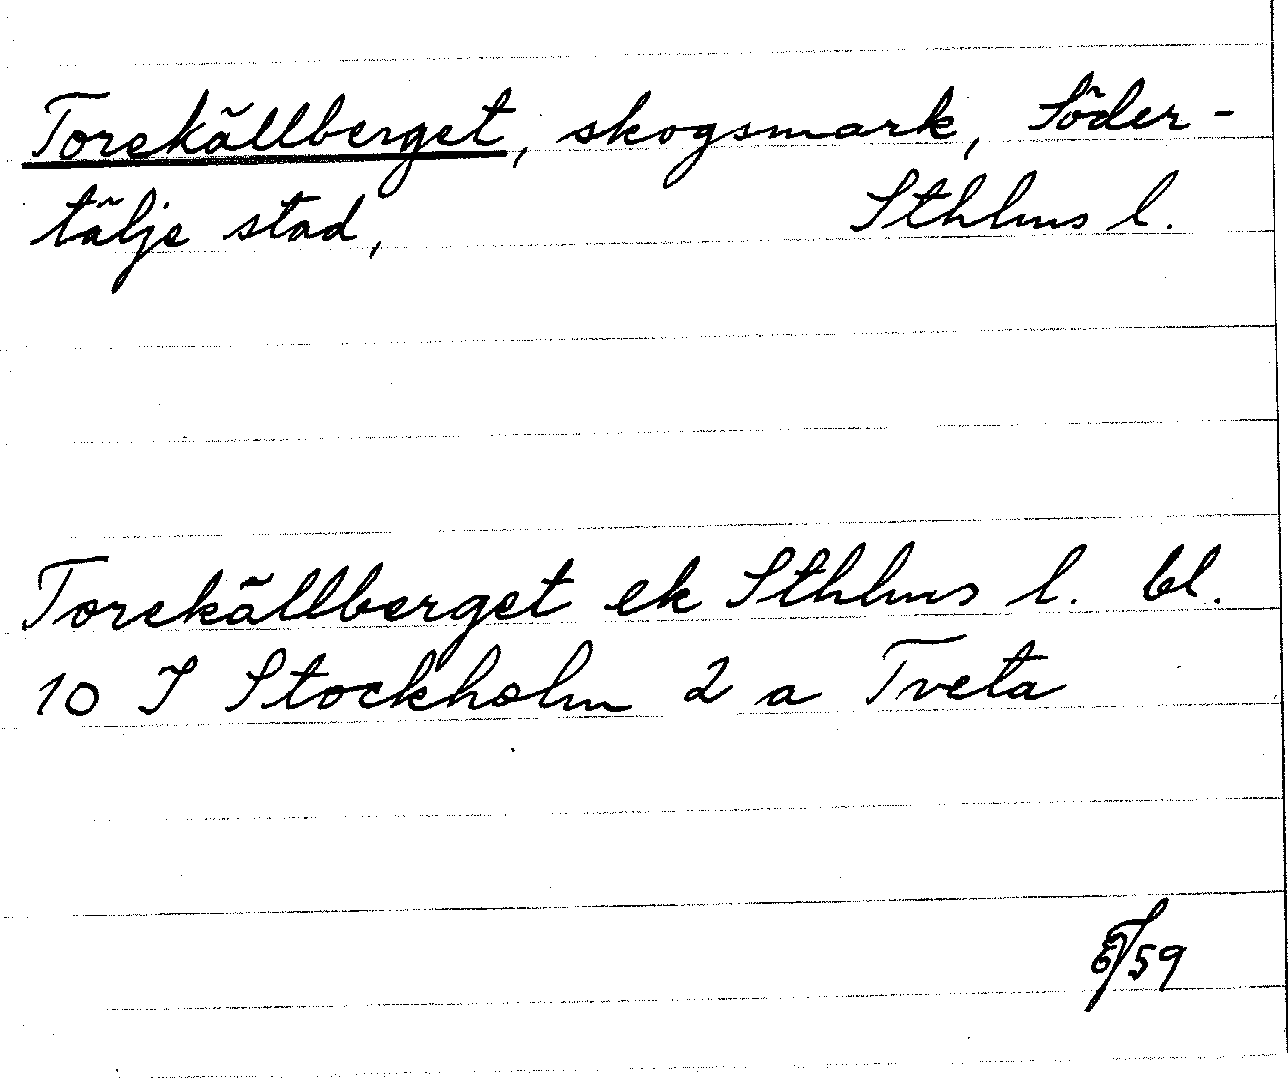 Torekällberget, skogsmark, Söder-
tälje stad, Sthlms l.
Torekällberget ek Sthlms l. bl.
10 I Stockholm 2 a Tveta
59